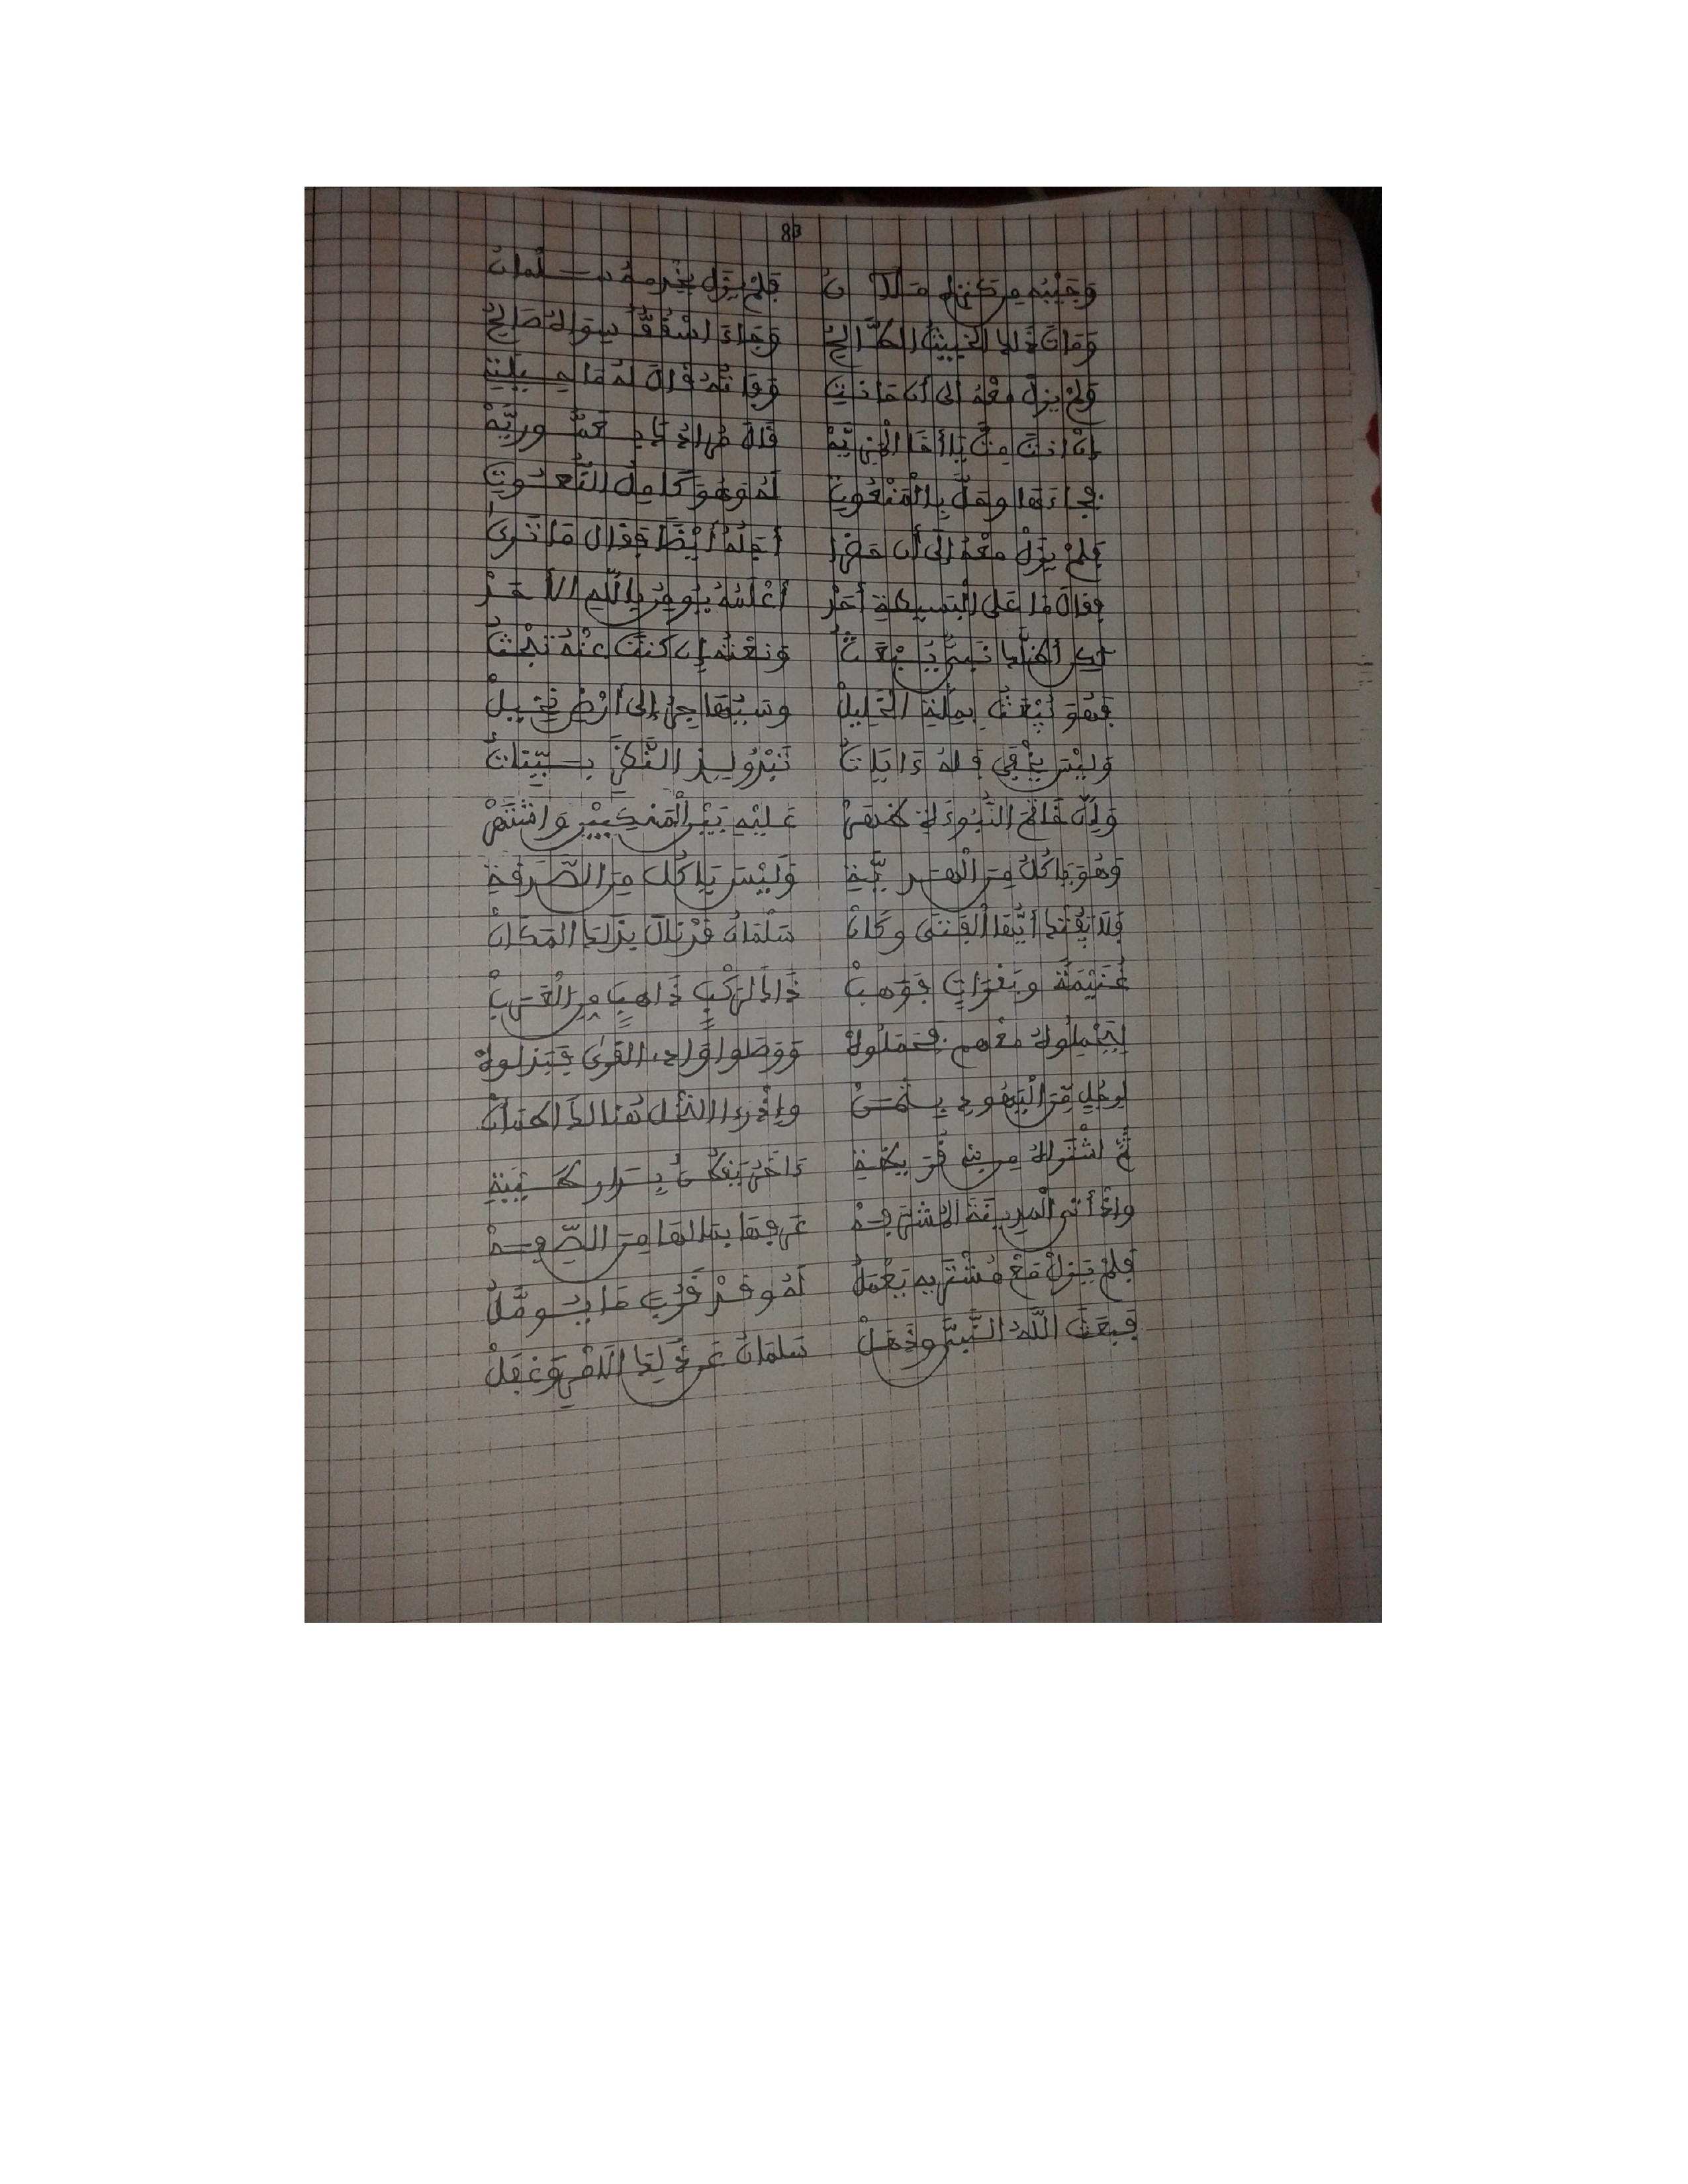 83
وَجَيْبُه مِن كَنزِه مَلآنُ فَلَمْ يَزَل يَخْدمهُ سلمانُ
وَمَاتَ ذَلِكَ الخَبِيثُ الطَّالِحُ وَجَاءَ اسْقُفٌّ سِوَاهُ صَالِحُ
وَلَمْ يَزَلْ مَعْهُ إلى أن حَانَتِ وَفَاتُهُ قَالَ لَهُ
قَالَ
فجاءَهَا وحَلَّ بِالْمَنْعُوتِ لَهُ وَهْوَ كَامِلُ النُّعُوتِ
فَلَمْ يَزَلْ مَعْهُ إلَى أن حَضَرَا أَجَلُهُ أَيْضًا فَقَالَ مَا تَرَى
فقالَ مَا عَلَى الْبَسِيطَةِ أَحَدْ أَعْلَمُهُ يُومِنُ بِاللَّهِ الأَحَدْ
لكن أظلنا نَبِيٌّ يُبْعَثُ وَنَعْتُه إن كنتَ عَنْهُ تَبْحَثُ
فَهْوَ يُبْعَثُ بِمِلَّةِ الخَلِيلْ وسَيُهَاجِرُ إلى أَرْضِ نَخِيلْ
وَلَيْسَ يَخْفَى وَلَهُ ءَايَاتُ تَبْدُو لِذِي النَّظَرِ بَيِّنَاتُ
وَإِنَّ خَاتَمَ النُّبُوءَةِ ظَهَرْ عَلَيْهِ بَيْنَ الْمَنْكِبَيْنِ وَاشْتَهَرْ
وَهُوَ يَاكُلُ مِنَ الْهَدِيَّةِ وَلَيْسَ يَاكُلُ مِنَ الصَّدَقَةِ
فَلاَ يَفُتْكَ أَيُّهَا الْفَتَى وكَانْ سَلْمَانُ قَدْ نَالَ بِذَلِكَ المَكَانْ
غُنَيْمَةً وبَقَرَاتٍ فَوَهبْ ذَاكَ لِرَكْبٍ ذَاهِبٍ مِنَ الْعَرَبْ
لِيَحْمِلُوهُ مَعْهم فَحَمَلُوهْ وَوَصَلُوا وَادِي القُرَى فَبَذَلُوهْ
لِرَجُلٍ مِّنَ الْيَهُودِ بِثَمَنْ وإذ رءا النَّخْلَ هُنَالِكَ اطمَأَنْ
ثُمَّ اشْتَرَاهُ مِن بني قُرَيظَةِ ءَاخَرُ يَنظُرُ
وإذ أتى الْمَدِينَةَ المُشَرَّفهْ عَرَفَهَا بِمَا لَهَا مِنَ الصِّفهْ
فَلَمْ يَزَلْ مَعْ مُشْتَرِيهِ يَعْمَلُ لَهُ وقَدْ قَرُبَ مَا يُؤَمَّلُ
فَبَعَثَ اللَّهُ النَّبِيَّ وذَهَلْ سَلمَانُ عَن ذَلِكَ الاَمْرِ وَغَفَلْ